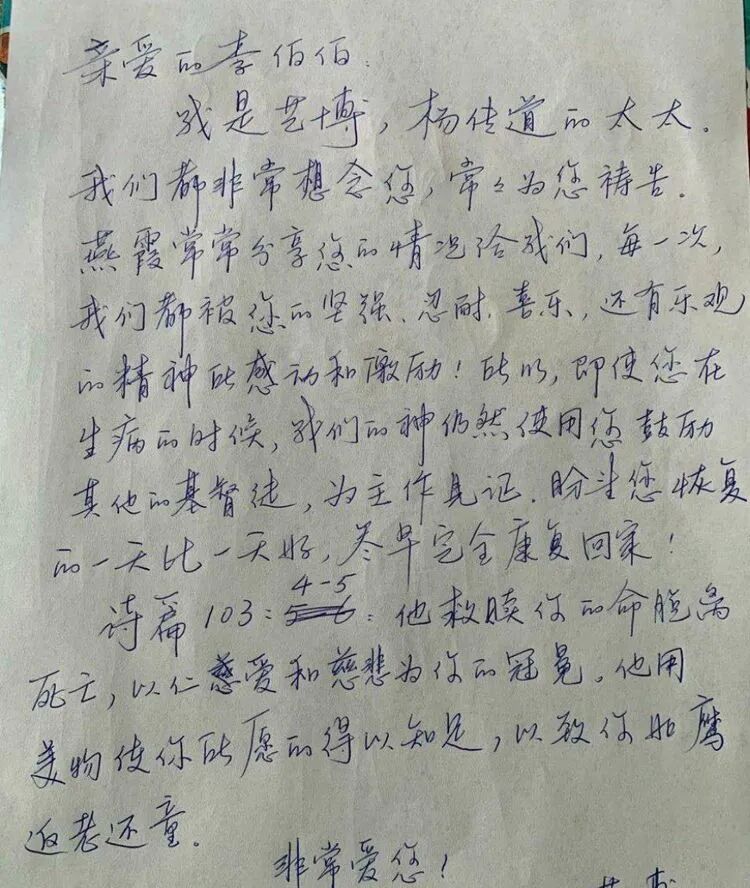 亲爱的李伯伯:
我是艺博,杨传道的太太。
我们都非常想念您,常々为您祷告.
燕霞常常分享您的情况给我们,每一次,
我们都被您的坚强、忍耐.喜乐,还有乐观
的精神所感动和激励!所以,即使您在
生病的时候,我们的神仍然使用您鼓励
其他的基督徒,为主作见证.盼望您恢复
的一天比一天好,尽早完全康复回家!
4-5
诗篇103:5-6:他救赎你的命脱离
死亡,以仁慈爱和慈悲为你的冠冕。他用
美物使你所愿的得以知足,以致你如鹰
返老还童.
非常爱您!